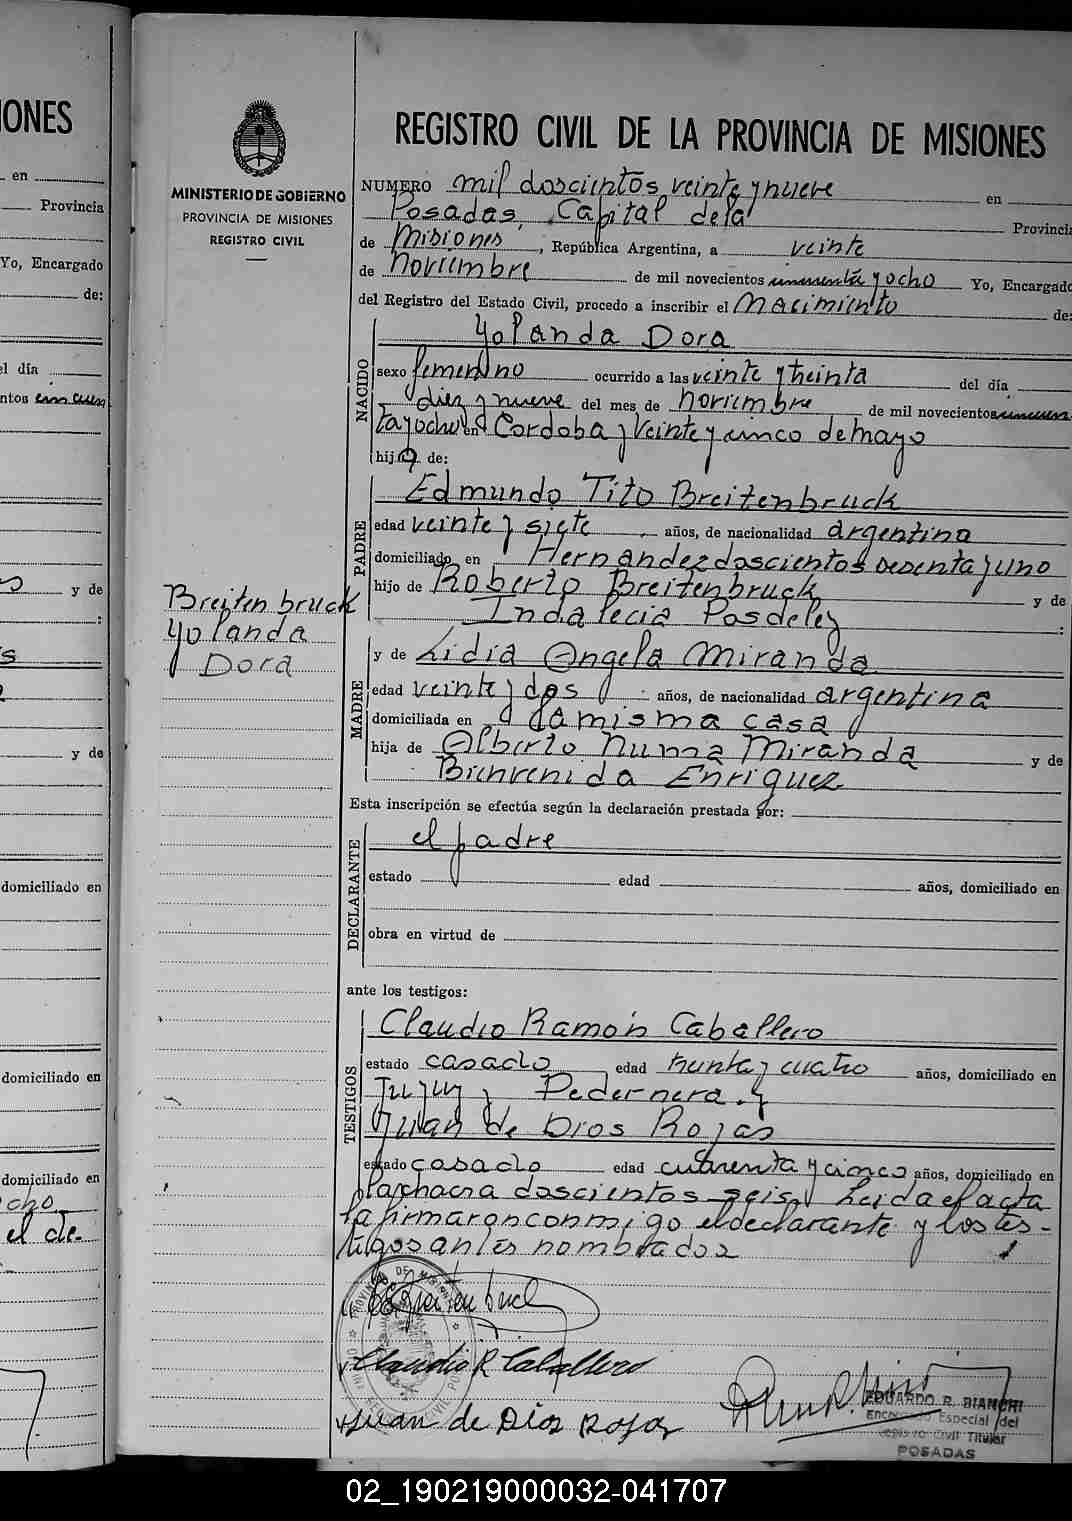 IONES
en
Provincia
Yo, Encargado
de:
el día
ntos cincuen
y de
:
y de
domiciliado en
domiciliado en
domiciliado en
ocho
el de-
MINISTERIO DE GOBIERNO
PROVINCIA DE MISIONES
REGISTRO CIVIL
Breitenbruck
Yolanda
Dora
REGISTRO CIVIL DE LA PROVINCIA DE MISIONES
NUMERO mil doscientos veinte y nueve en
Posadas, Capital de la Provincia
de Misiones, República Argentina, a veinte
de noviembre de mil novecientos cincuenta y ocho Yo, Encargado
del Registro del Estado Civil, procedo a inscribir el nacimiento de:
NACIDO
Yolanda Dora
sexo femenino ocurrido a las veinte y treinta del día
diez y nueve del mes de noviembre de mil novecientos cincuen
ta y ocho en Cordoba y Veinte y cinco de mayo
hija de:
PADRE
Edmundo Tito Breitenbruck
edad veinte y siete años, de nacionalidad argentina
domiciliado en Hernandez doscientos sesenta y uno
hijo de Roberto Breitenbruck y de
Indalecia Posdeley :
MADRE
y de Lidia Angela Miranda
edad veinte y dos años, de nacionalidad argentina
domiciliada en la misma casa
hija de Alberto Numa Miranda y de
Bienvenida Enriquez
Esta inscripción se efectúa según la declaración prestada por:
DECLARANTE
el padre
estado edad años, domiciliado en
obra en virtud de
ante los testigos:
TESTIGOS
Claudio Ramón Caballero
estado casado edad treinta y cuatro años, domiciliado en
Jujuy y Pedernera y
Juan de Dios Rojas
estado casado edad cuarenta y cinco años, domiciliado en
la chacra doscientos seis. Leida el acta
la firmaron conmigo el declarante y los tes-
tigos antes nombrados
Claudio R. Caballero
Juan de Dios Rojas
EDUARDO R. BIANCHI
Encargado Especial del
Registro Civil Titular
POSADAS
02_190219000032-041707